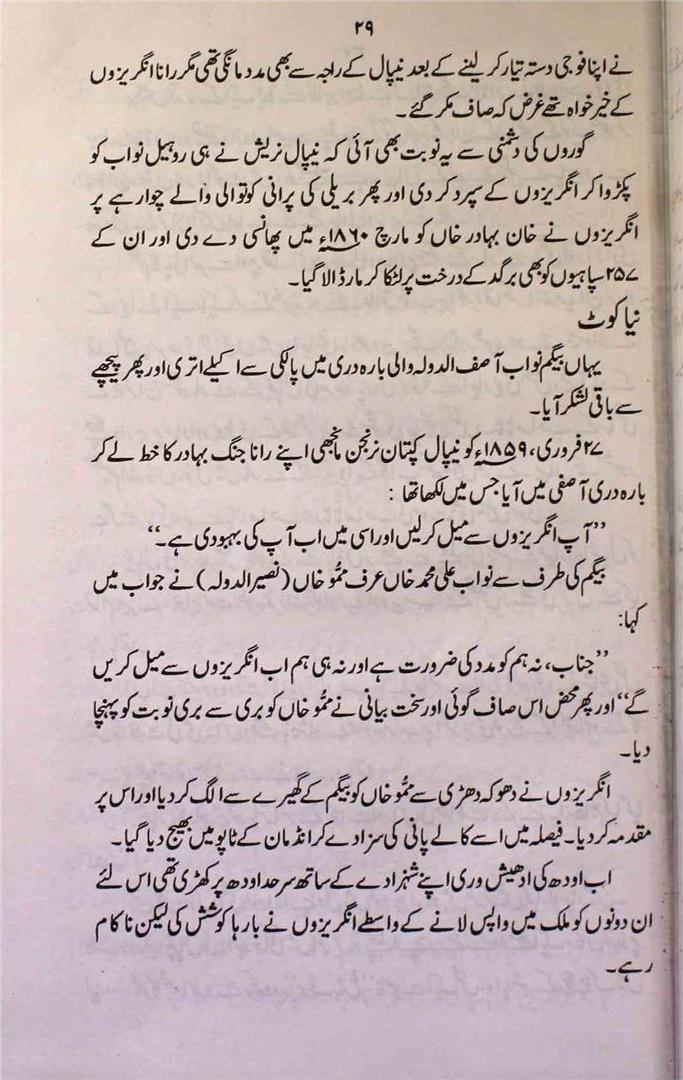 ۲۹
نے اپنا فوجی دستہ تیار کر لینے کے بعد نیپال کے راجہ سے بھی مدد مانگی تھی مگر رانا انگریزوں
کے خیر خواہ تھے غرض کہ صاف مکر گئے۔
گوروں کی دشمنی سے یہ نوبت بھی آئی کہ نیپال نریش نے ہی روہیل نواب کو
پکڑوا کر انگریزوں کے سپرد کر دی اور پھر بریلی کی پرانی کوتوالی والے چوراہے پر
انگریزوں نے خان بہادر خاں کو مارچ ۱۸۶۰ء میں پھانسی دے دی اور ان کے
۲۵۷ سپاہیوں کو بھی برگد کے درخت پر لٹکا کر مار ڈالا گیا۔
نیا کوٹ
یہاں بیگم نواب آصف الدولہ والی بارہ دری میں پالکی سے اکیلے اتری اور پھر پیچھے
سے باقی لشکر آیا۔
۲۷ فروری، ۱۸۵۹ء کو نیپال کپتان نرنجن مانجھی اپنے رانا جنگ بہادر کا خط لے کر
بارہ دری آصفی میں آیا جس میں لکھا تھا :
’’آپ انگریزوں سے میل کر لیں اور اسی میں اب آپ کی بہبودی ہے۔‘‘
بیگم کی طرف سے نواب علی محمد خاں عرف ممُّو خاں (نصیر الدولہ) نے جواب میں
کہا:
’’جناب، نہ ہم کو مدد کی ضرورت ہے اور نہ ہی ہم اب انگریزوں سے میل کریں
گے‘‘ اور پھر محض اس صاف گوئی اور سخت بیانی نے ممُّو خاں کو بری سے بری نوبت کو پہنچا
دیا۔
انگریزوں نے دھوکہ دھڑی سے ممُّو خاں کو بیگم کے گھیرے سے الگ کر دیا اور اس پر
مقدمہ کر دیا۔ فیصلہ میں اسے کالے پانی کی سزا دے کر انڈمان کے ٹاپو میں بھیج دیا گیا۔
اب اودھ کی ادھیش وری اپنے شہزادے کے ساتھ سرحد اودھ پر کھڑی تھی اس لئے
ان دونوں کو ملک میں واپس لانے کے واسطے انگریزوں نے بارہا کوشش کی لیکن ناکام
رہے۔